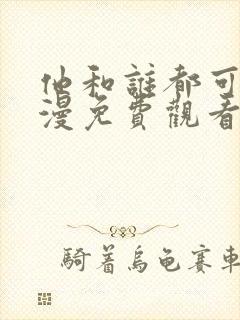 他和誰都可
漫免費觀看
騎着烏龜賽車